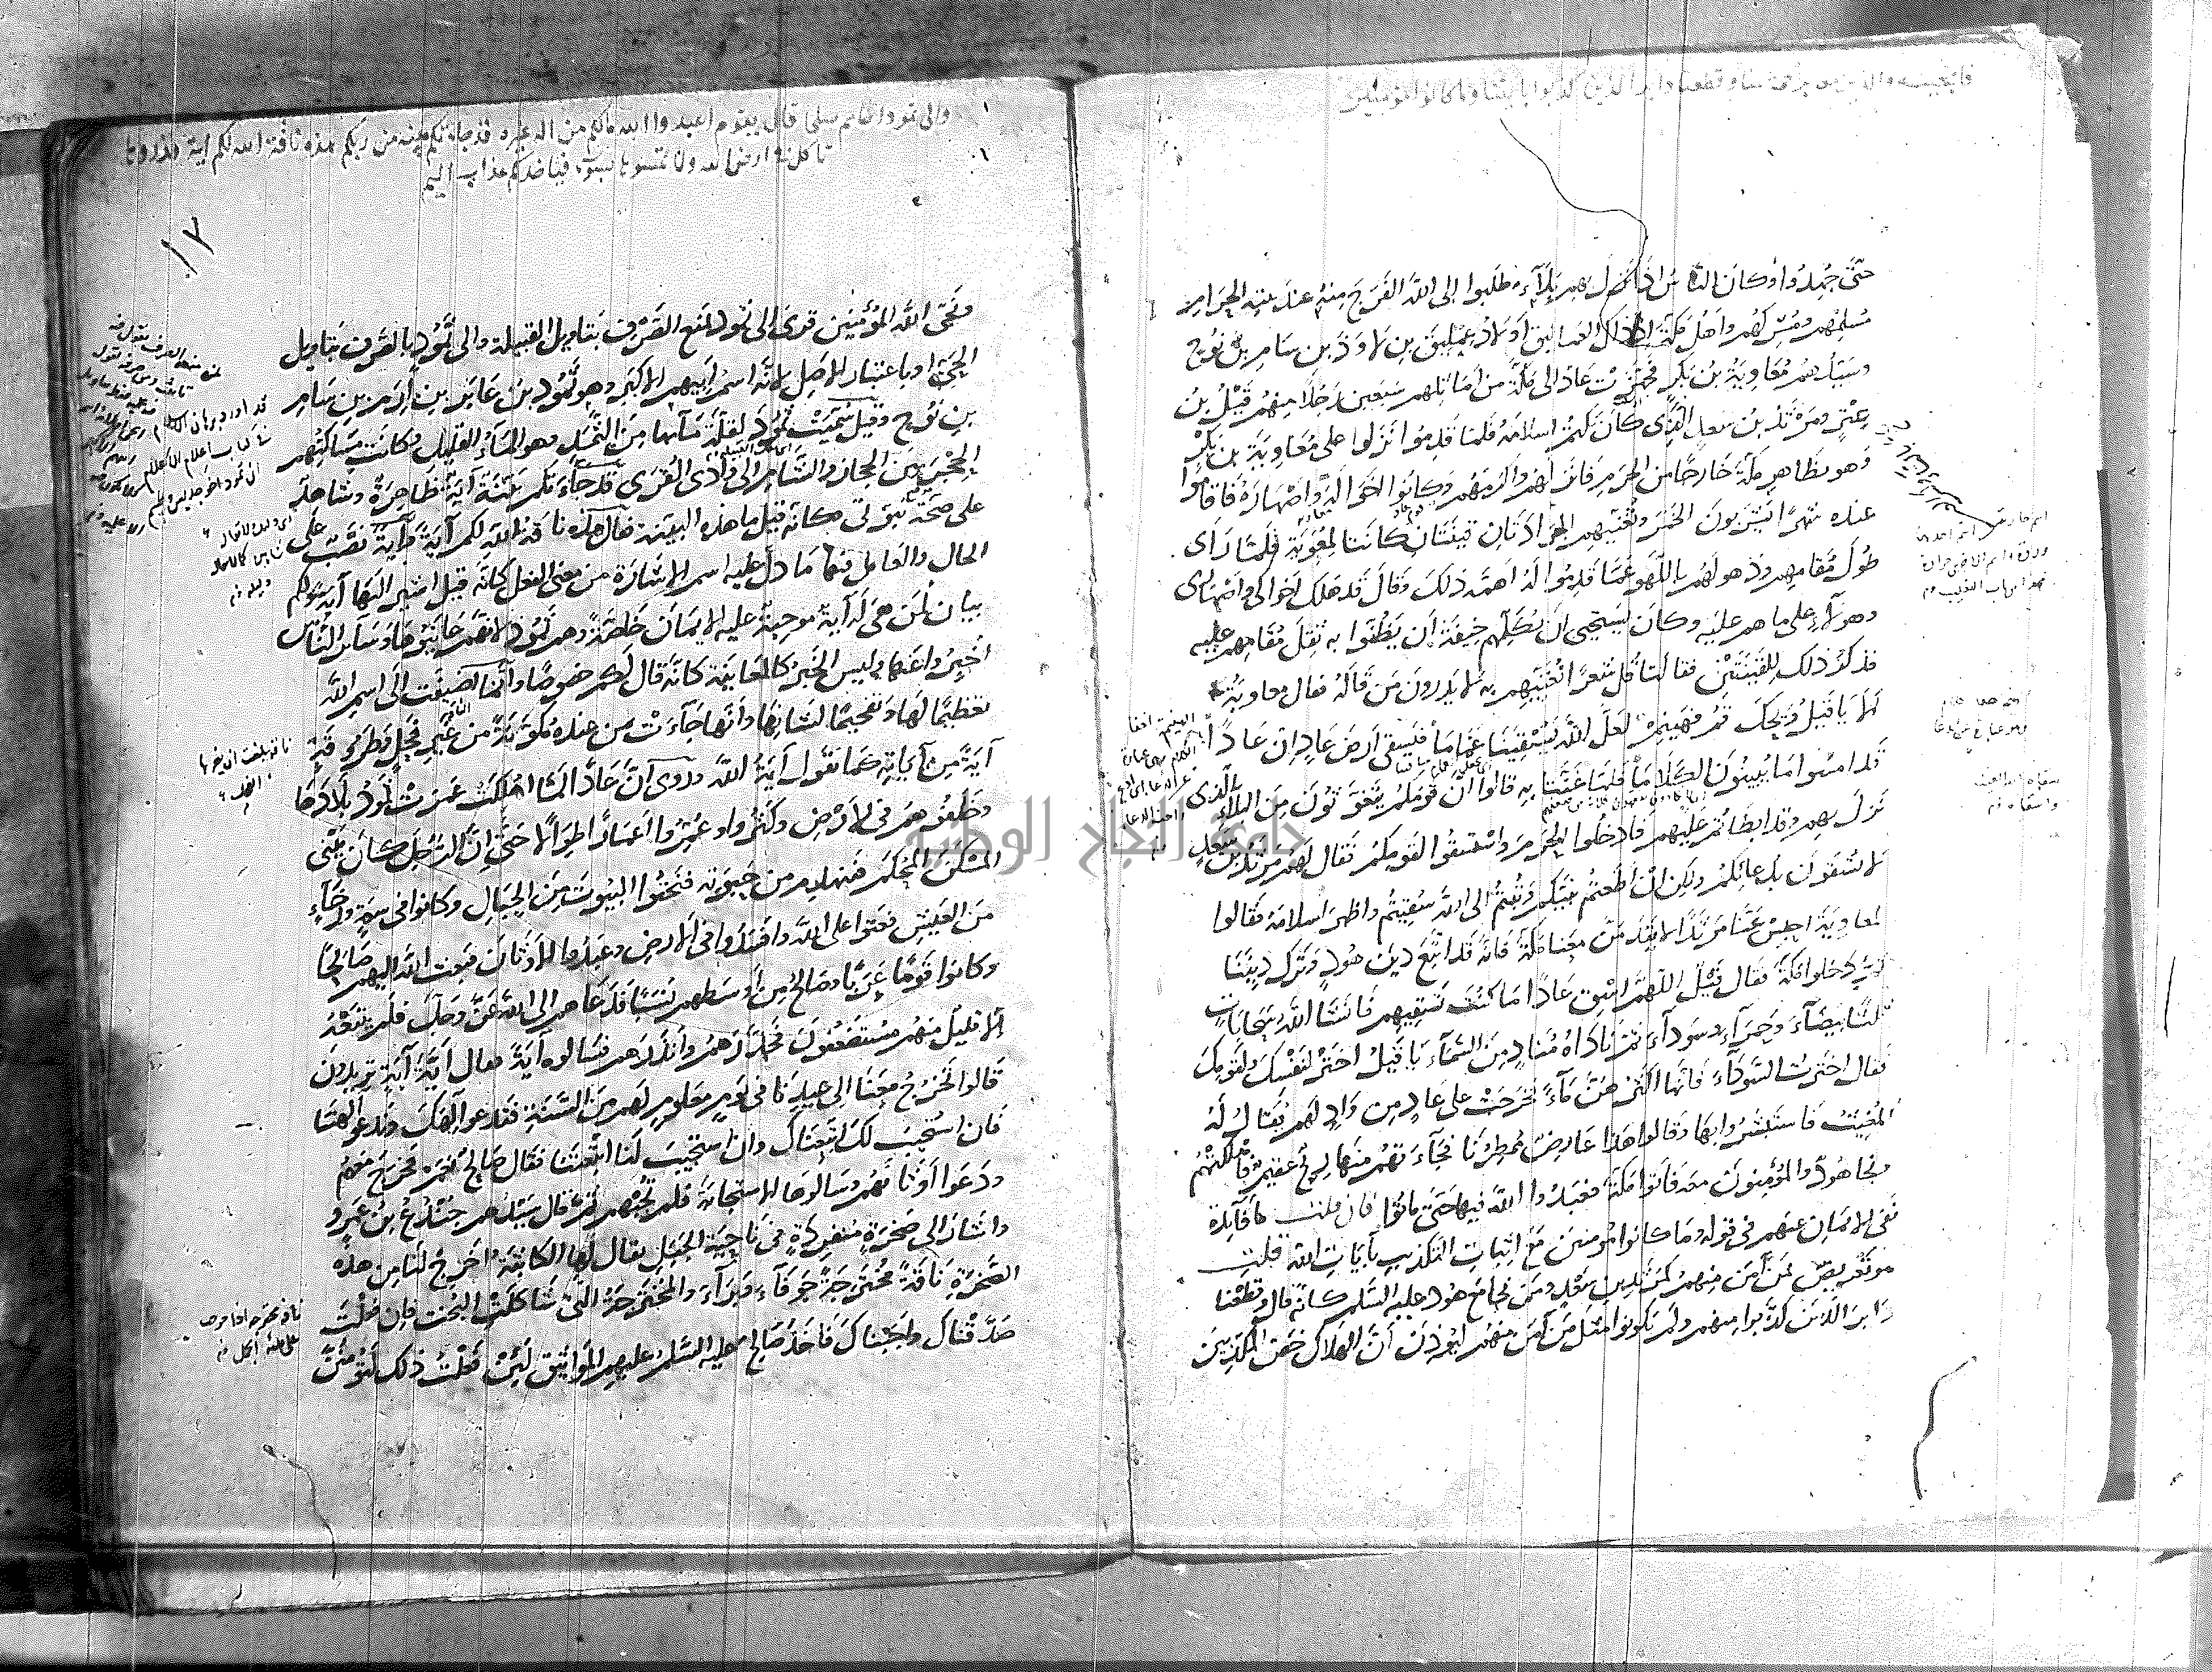 فانجيناه والذين معه برحمة منا وقطعنا دابر الذين كذبوا بآياتنا وما كانوا مؤمنين
حتّى جُهِدُوا وكان الناس اذا نزل بهم بَلَآءٌ طلبوا الى الله الفَرَجَ منهُ عند بيته الحرام
مُسلمُهم ومُشرِكُهم واَهْلُ مكّةَ اذ ذاك العماليق اَولادُ عِمْليقَ بن لاوَذَ بن سام بن نوح
وسَيّدُهم مُعَاوِيَةُ بنُ بَكْرٍ فجهّزت عادٌ الى مكّةَ من اَمَاثِلهم سَبعينَ رَجُلاً منهم قَيْلُ بنُ
عِتْرٍ ومَرْثَدُ بنُ سَعدٍ الذى كان يكتمُ اسلامَهُ فلمّا قدِموا نَزَلوا على مُعَاوِيَةَ بنِ بَكْرٍ
وهو بظاهر مكّةَ خارجًا من الحرم فانزلهم واكرمهم وكانوا اخوالَهُ واصْهارَهُ فاقاموا
عنده شهرًا يشربون الخمرَ وتُغنّيهم الجرادتانِ قينتانِ كانتا لمُعاويةَ فلمّا رَاى
طُولَ مُقامِهم وذهولَهم باللهو عمّا قدِموا لَهُ اهمّه ذلك وقال قد هَلَكَ اَخوالى واَصْهارى
وهؤلآءِ على ما هم عليه وكان يَستحيى ان يُكلِّمَهم خيفةَ ان يَظنّوا به ثِقَلَ مُقامهم عليه
فذكر ذلك للقينتينِ فقالتا قُل شِعرًا نُغنّيهم به لا يدرونَ مَن قالَهُ فقال معاويةُ
اَلَا يا قَيلُ ويحَكَ قُم فهَيْنِمْ لعلّ اللهَ يَسْقينا غماما فيَسقى اَرضَ عادٍ انّ عادًا
قد امسَوا ما يُبينونَ الكلاما فلمّا غَنّتا به قالوا انّ قومَكُم يتغوّثونَ منَ البلاءِ الّذى
نَزَلَ بهم وقد ابطأتم عليهم فادخلُوا الحرمَ واستسقُوا لقومكم فقال لهم مَرْثَدُ بن سَعدٍ
لا تُسقَونَ بدعائكم ولكن ان اَطعتم نبيّكم وتُبتُم الى اللهِ سُقيتُم واظهر اسلامَهُ فقالوا
لمعاويةَ احبِسْ عنّا مَرثدًا لا يَقْدَمَنّ معَنا مكّةَ فانّه قد اتّبعَ دينَ هودٍ وتَركَ ديننا
ثمّ دخلوا مكّةَ فقال قَيْلٌ اللهمّ اسْقِ عادًا ما كنتَ تَسقيهم فانشأ اللهُ سحاباتٍ
ثلثًا بيضآءَ وحمرآءَ وسودآءَ ثمّ ناداهُ مُنادٍ منَ السّمآءِ يا قَيلُ اختَرْ لنفسك ولقومكَ
فقال اخترتُ السّودآءَ فانّها اكثرهنّ مآءً فخرجَتْ على عادٍ من وادٍ لهم يُقالُ لهُ
المُغيثُ فاستبشرُوا بها وقالوا هذا عارضٌ مُمطِرُنا فجآءتهم منها ريحٌ عقيمٌ فاهلكتهم
ونجا هُودٌ والمؤمنون معه فاتوا مكّةَ فعبدُوا اللهَ فيها حتّى ماتُوا فان قلت ما فائدة
نفى الايمان عنهم فى قوله وما كانوا مؤمنين مَعَ اثباتِ التكذيب بآياتِ الله قلت
هو تعريضٌ بمن آمن منهم كمَرثدِ بن سَعدٍ ومَن نجا مع هُودٍ عليه السّلم كانّه قال وقطعنا
دابرَ الّذين كذّبوا منهم ولم يكونوا مثل مَن آمَنَ منهم ليُؤذِنَ انّ الهلاكَ خصّ المكذّبينَ
والى ثمود اخاهم صلحا قال يقوم اعبدوا الله ما لكم من اله غيره قد جاءتكم بينة من ربكم هذه ناقة الله لكم اية فذروها
تاكل فى ارض الله ولا تمسوها بسوء فياخذكم عذاب اليم
١٢
ونَجّى اللهُ المُؤمنين قرئ والى ثمودَ بمنع الصّرف بتاويل القبيلة والى ثمودٍ بالصّرف بتاويل
الحىّ او باعتبار الاصل لانّه اسمُ ابيهم الاكبر وهو ثمودُ بن عابَر بن اِرَم بن سام
بن نوح وقيل سُمّيَتْ ثمودَ لقلّةِ مآئها من الثَّمَد وهو المآءُ القليل وكانت مساكنُهم
الحِجْرَ بين الحجاز والشام الى وادى القُرى قد جآءتكم بيّنةٌ آيةٌ ظاهرةٌ وشاهد
على صحّة نُبوّتى وكانّه قيل ما هذه البيّنة فقال هذه ناقةُ اللهِ لكم آيةً وآيةً نصب على
الحال والعامل فيها ما دلّ عليه اسم الاشارة من معنى الفعل كانّه قيل اشير اليها آيةً ولكم
بيان لمَن هى لَه آيةٌ موجبةٌ عليه الايمانَ خاصّةً وهم ثمودُ لانّهم عاينُوها وسآئرُ النّاس
اخبِرُوا عنها وليس الخبرُ كالمعاينة كانّه قال لكم خصوصًا وانّما اضيفت الى اسم الله
تعظيمًا لها وتفخيمًا لشانِها وانّها جآءت من عندهُ مُكوّنةً من غيرِ فحلٍ وطَروقةٍ
آيةً من آياتِهِ كما تقول آيةُ الله وروى انّ عادًا لمّا اُهلِكَتْ عَمَرت ثمودُ بلادَها
وخَلَفُوهم فى الارض وكثُروا وعُمِّروا اعمارًا طِوالًا حتّى انّ الرّجل كان يبنى
المسْكَنَ المُحكَم فينهدم من حَيوته فنحتُوا البيُوتَ منَ الجبالِ وكانوا فى سعةٍ ورخآءٍ
من العيش فعتوا على الله وافسدُوا فى الارض وعبدُوا الاوثان فبعث الله اليهم صالحًا
وكانوا قومًا عَرَبًا وصالحٌ من اَوسَطهم نسَبًا فدعاهم الى اللهِ عزّ وجلّ فلم يتبعْهُ
الا قليلٌ منهم مستضعَفونَ فحذّرهم وانذرهم فسالوه آيةً فقال اَيّةَ آيةٍ تريدون
قالوا تخرُجُ معنا الى عيدِنا فى يومٍ معلومٍ لهم من السّنَةِ فتدعو آلهكَ وندعُو آلهتنا
فان استُجيبَ لك اتبعناك وان استجيبَ لنا اتبعتنا فقال صالحٌ نعم فخرجَ معهم
ودَعَوا اَوثانَهم وسَالُوها الاستجابةَ فلم تُجبْهم ثمّ قال سيّدُهم جُنْدُعُ بنُ عَمرٍو
واشار الى صخرةٍ منفرِدةٍ فى ناحيةِ الجبلِ يقال لها الكاثِبَةُ اَخرِجْ لنا من هذه
الصّخرةِ ناقةً مخترَجةً جوفآءَ وَبْرآءَ والمخترَجةُ الّتى شاكَلتِ البُخت فان فعلتَ
صدّقناكَ واجبناكَ فاخذ صالح عليه السّلم عليهم المواثيق لئن فعلتُ ذلك لتؤمنُنّ
جامعة النجاح الوطنية